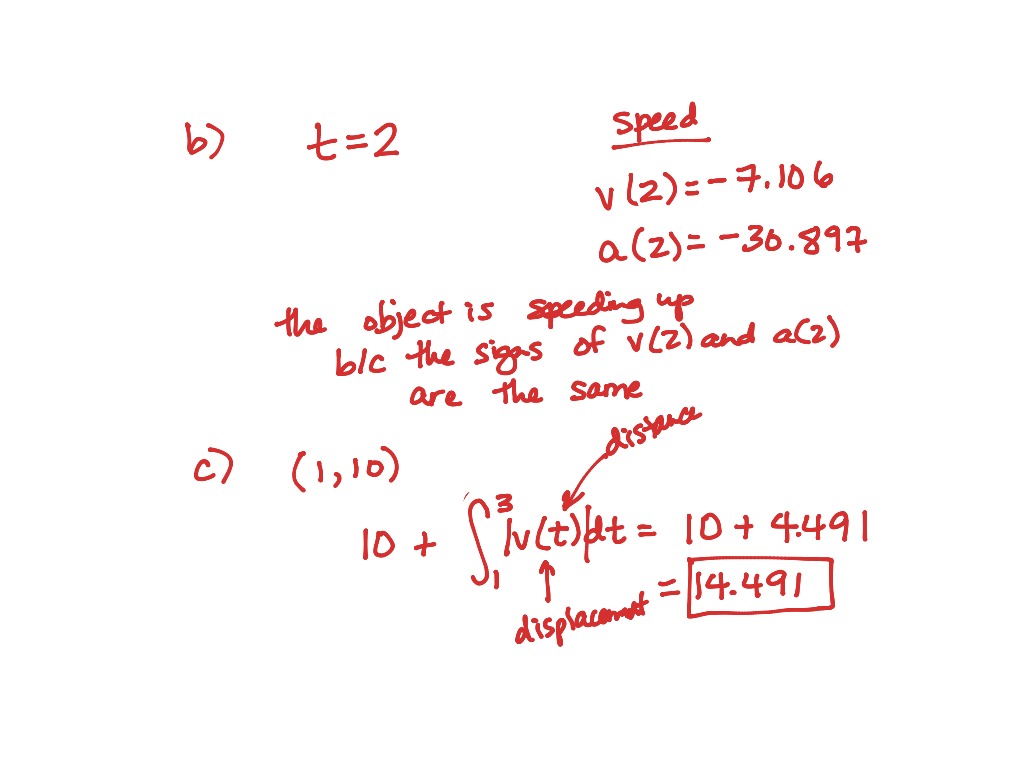 b) t=2
speed
v(2)=-7.106
a(2)=-30.897
the object is speeding up
b/c the signs of v(2) and a(2)
are the same
c) (1,10)
distance
10 + ∫₁³ |v(t)|dt = 10 + 4.491
= 14.491
displacement